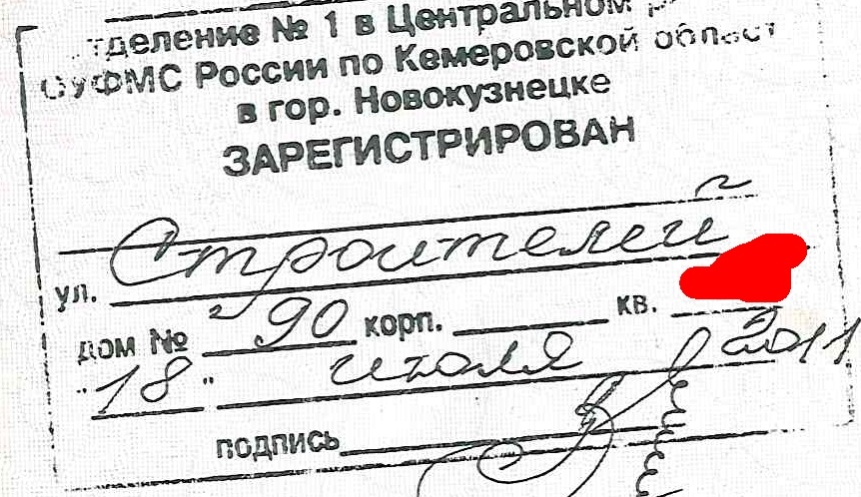 тделение № 1 в Центральном р
ОУФМС России по Кемеровской област
в гор. Новокузнецке
ЗАРЕГИСТРИРОВАН
ул. Строителей
дом № 90 корп. кв.
"18" июля 2011
подпись